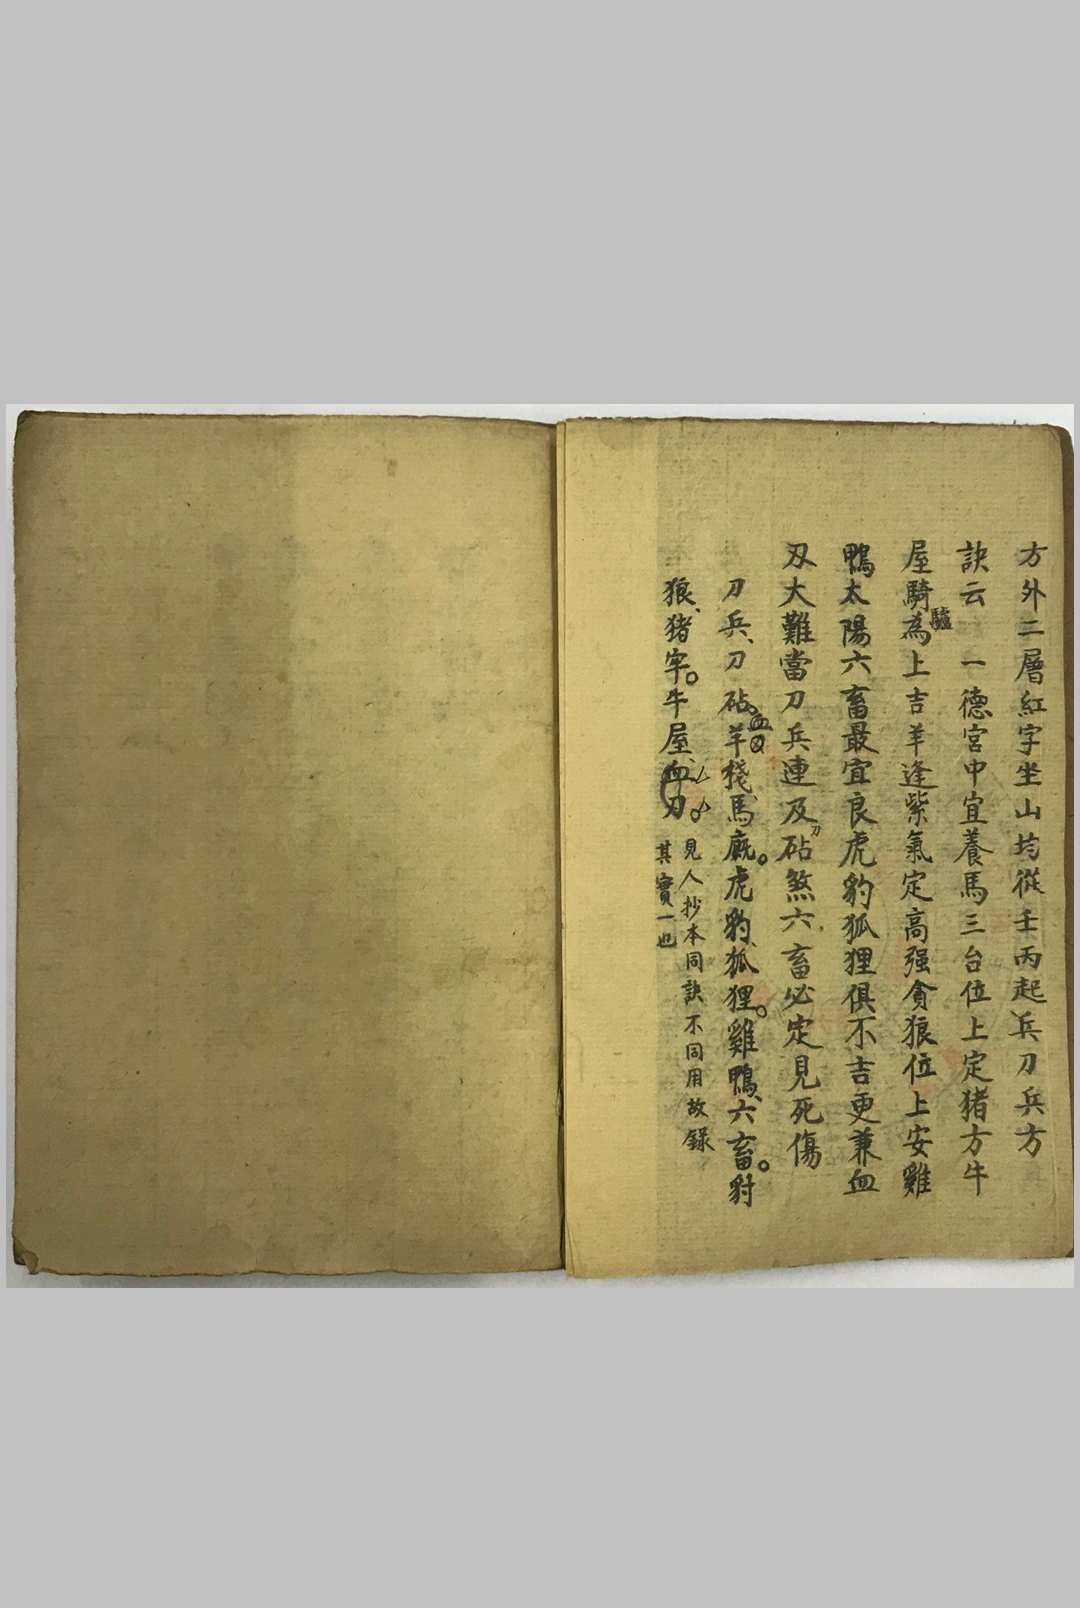 方外二層紅字坐山均從壬丙起兵刀兵方
訣云 一德宮中宜養馬三台位上定猪方牛
屋騎為上吉羊逢紫氣定高强貪狼位上安雞
驢
鴨太陽六畜最宜良虎豹狐狸俱不吉更兼血
刄大難當刀兵連及砧煞六畜必定見死傷
刀
刀兵、刀砧羊棧馬廐。虎豹、狐狸。雞鴨、六畜。豺
血刄
狼、猪牢。牛屋、血刀。
見人抄本同訣不同用故録
其實一也